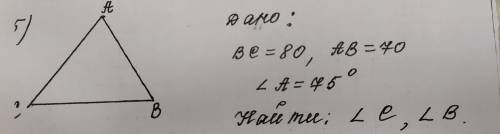 5)
A
B
Дано:
BC = 80, AB = 70
∠A = 75°
Найти: ∠C, ∠B.